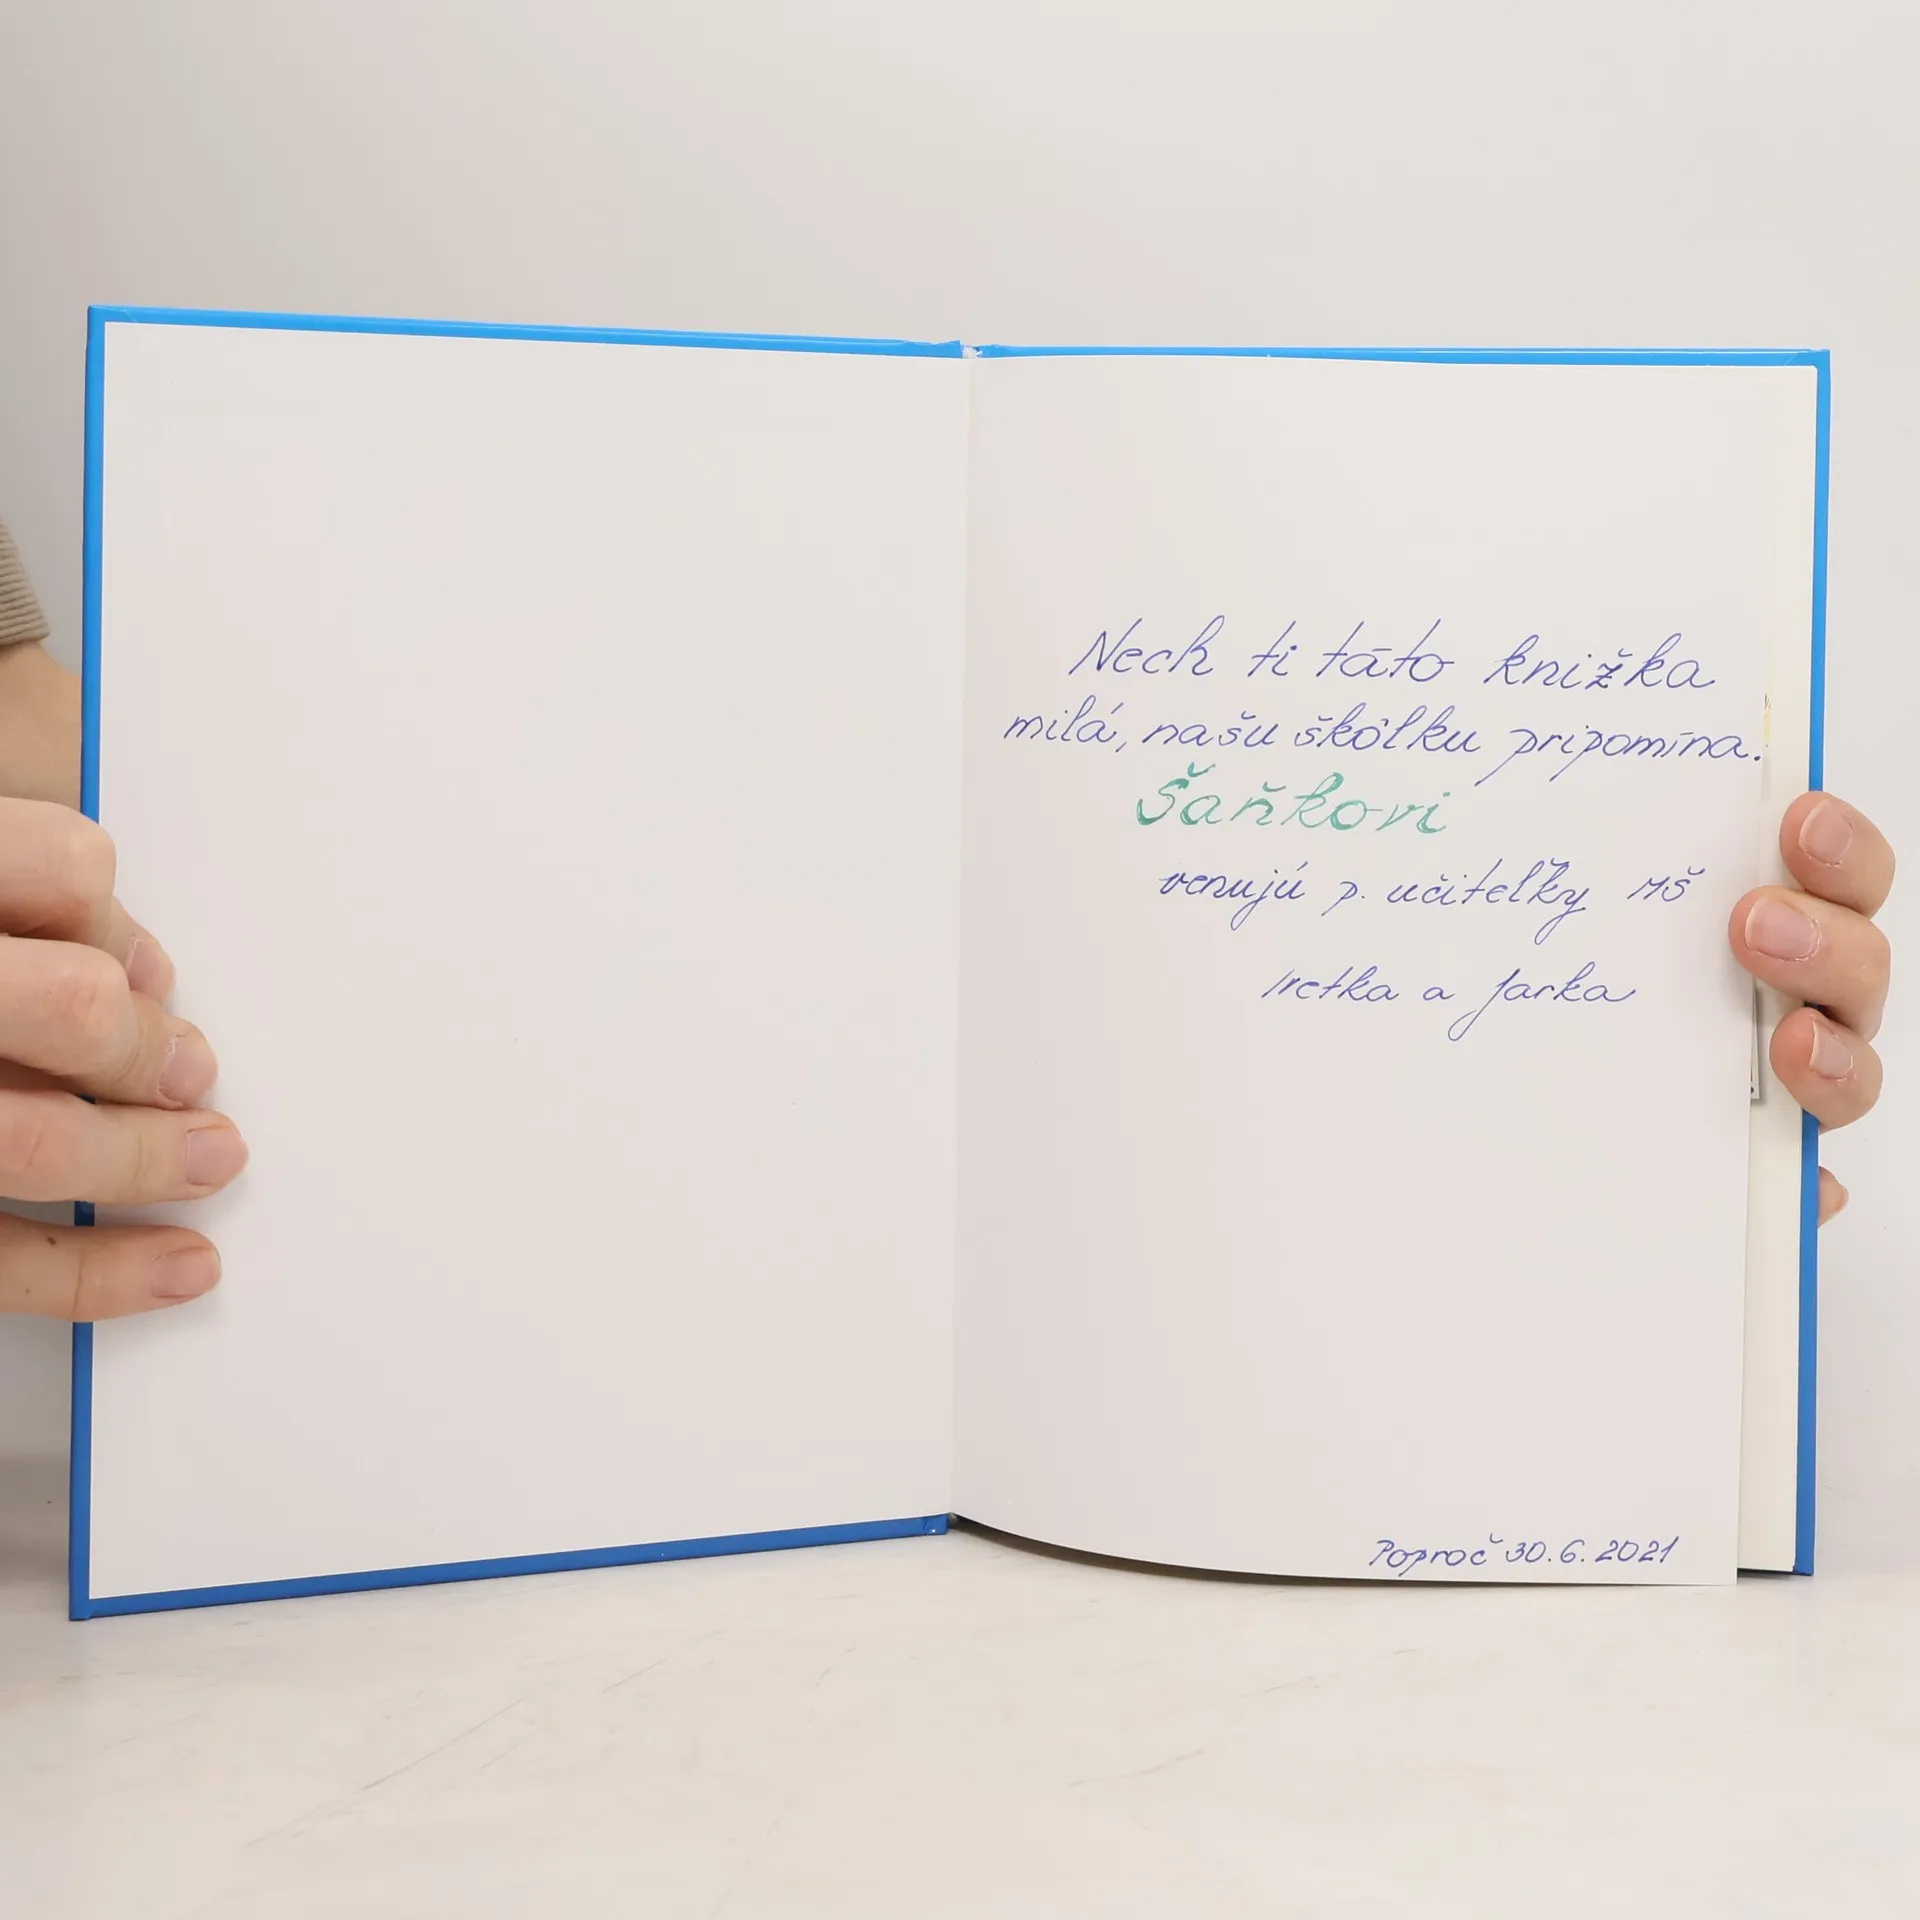 Nech ti táto knižka
milá, našu škôlku pripomína.
Šaňkovi
venujú p. učiteľky MŠ
Iretka a Jarka
Poproč 30.6.2021